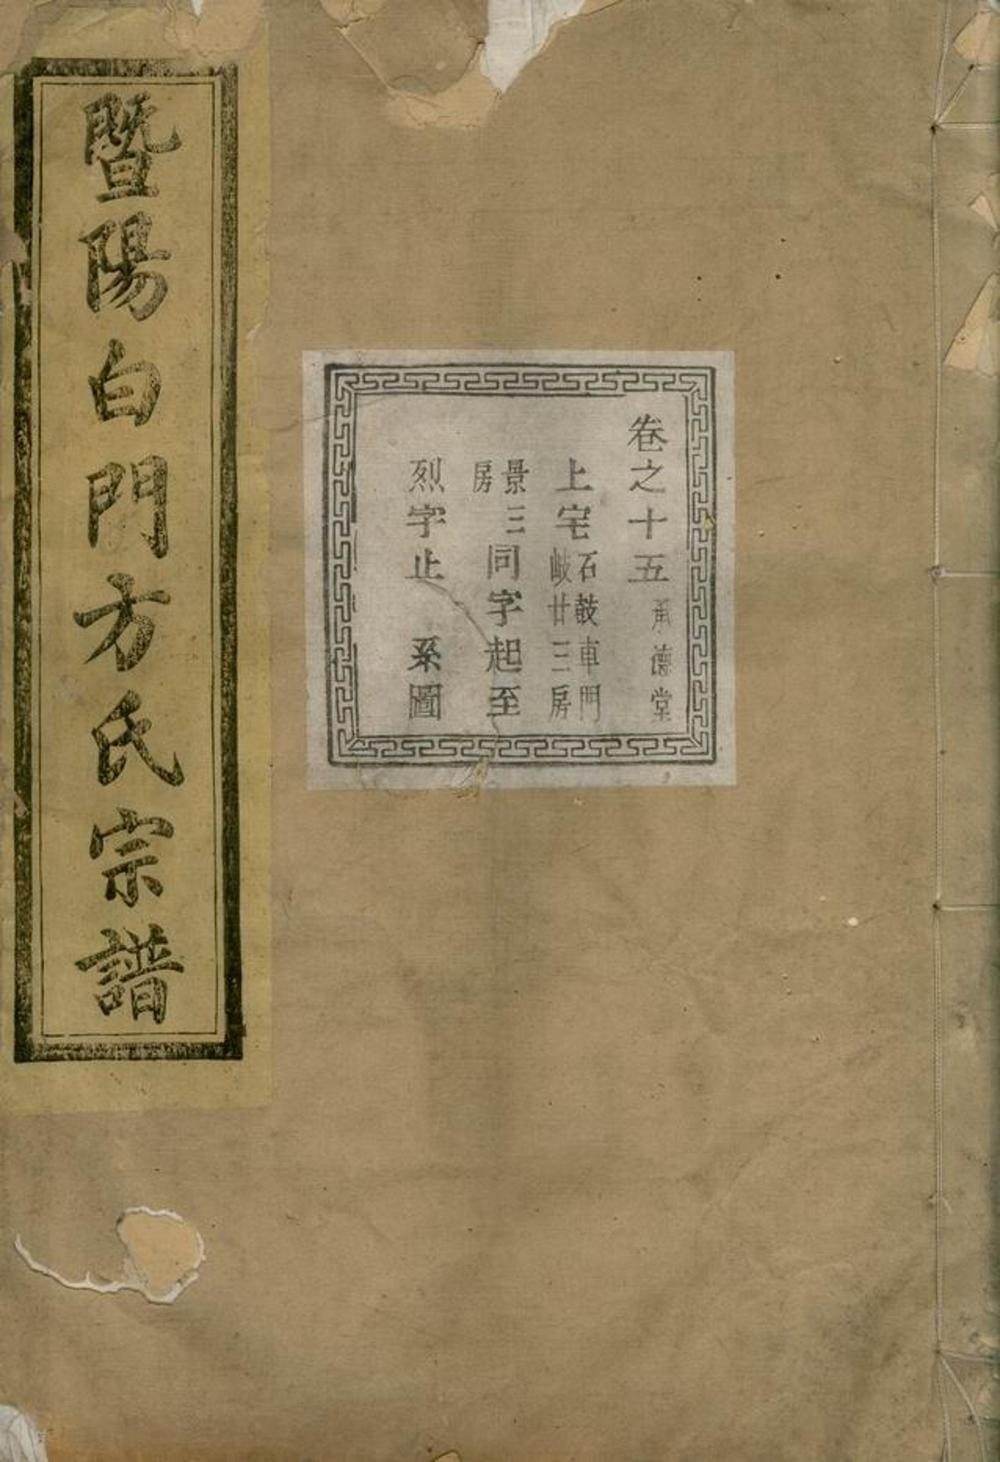 暨陽白門方氏宗譜
卷之十五 承德堂
上宅 石鼓車門 岐廿三房
景三房同字起至
烈字止 系圖